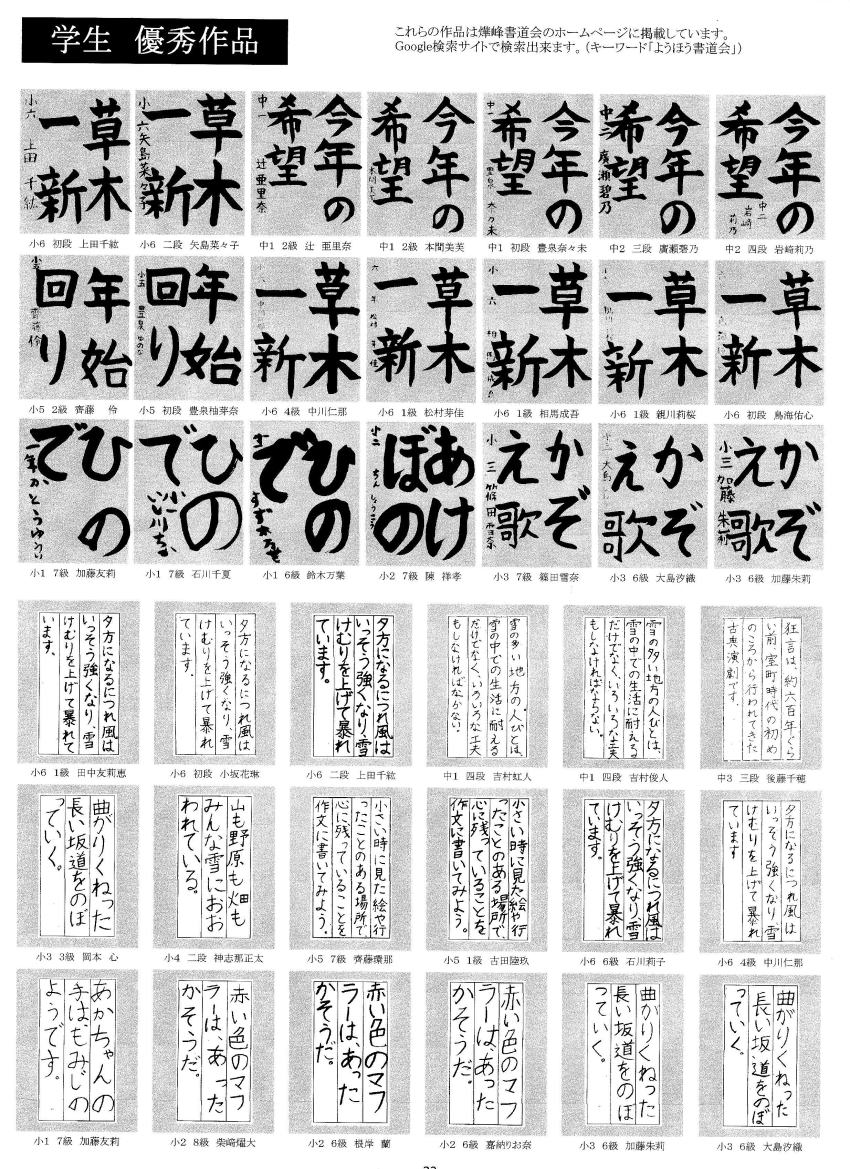 学生 優秀作品
これらの作品は燁峰書道会のホームページに掲載しています。
Google検索サイトで検索出来ます。（キーワード「ようほう書道会」）
草木
一新
小六 上田 千紘
草木
一新
小六 矢島菜々子
今年の
希望
中一 辻亜里奈
今年の
希望
今年の
希望
中一 豊泉 奈々未
今年の
希望
中二 廣瀬碧乃
今年の
希望
中二 岩崎莉乃
小6 初段 上田千紘
小6 二段 矢島菜々子
中1 2級 辻 亜里奈
中1 2級 本間美芙
中1 初段 豊泉奈々未
中2 三段 廣瀬碧乃
中2 四段 岩崎莉乃
年始
回り
小五 齊藤 伶
年始
回り
小五 豊泉ゆのな
草木
一新
草木
一新
草木
一新
小六
草木
一新
草木
一新
小5 2級 齊藤 伶
小5 初段 豊泉柚芽奈
小6 4級 中川仁那
小6 1級 松村芽佳
小6 1級 相馬成吾
小6 1級 親川莉桜
小6 初段 鳥海佑心
ひの
で
一年かとうゆうり
ひの
で
ひの
で
あけ
ぼの
小二
かぞ
え歌
小三 篠田雪奈
かぞ
え歌
小三 大島
かぞ
え歌
小三 加藤朱莉
小1 7級 加藤友莉
小1 7級 石川千夏
小1 6級 鈴木万葉
小2 7級 陳 祥孝
小3 7級 篠田雪奈
小3 6級 大島汐織
小3 6級 加藤朱莉
夕方になるにつれ風は
いっそう強くなり、雪
けむりを上げて暴れて
います。
夕方になるにつれ風は
いっそう強くなり、雪
けむりを上げて暴れ
ています。
夕方になるにつれ風は
いっそう強くなり、雪
けむりを上げて暴れ
ています。
雪の多い地方の人びとは、
雪の中での生活に耐える
だけでなく、いろいろな工夫
もしなければならない。
雪の多い地方の人びとは、
雪の中での生活に耐える
だけでなく、いろいろな工夫
もしなければならない。
狂言は、約六百年ぐら
い前、室町時代の初め
のころから行われてきた
古典演劇です。
小6 1級 田中友莉恵
小6 初段 小坂花琳
小6 二段 上田千紘
中1 四段 吉村虹人
中1 四段 吉村俊人
中3 三段 後藤千穂
曲がりくねった
長い坂道をのぼ
っていく。
山も野原も畑も
みんな雪におお
われている。
小さい時に見た絵や行
ったことのある場所で、
心に残っていることを
作文に書いてみよう。
小さい時に見た絵や行
ったことのある場所で、
心に残っていることを
作文に書いてみよう。
夕方になるにつれ風は
いっそう強くなり、雪
けむりを上げて暴れ
ています。
夕方になるにつれ風は
いっそう強くなり、雪
けむりを上げて暴れ
ています
小3 3級 岡本 心
小4 二段 神志那正太
小5 7級 齊藤璟那
小5 1級 古田陸玖
小6 6級 石川莉子
小6 4級 中川仁那
あかちゃんの
手はもみじの
ようです。
赤い色のマフ
ラーは、あった
かそうだ。
赤い色のマフ
ラーは、あった
かそうだ。
赤い色のマフ
ラーは、あった
かそうだ。
曲がりくねった
長い坂道をのぼ
っていく。
曲がりくねった
長い坂道をのぼ
っていく。
小1 7級 加藤友莉
小2 8級 柴崎燿大
小2 6級 根岸 蘭
小2 6級 嘉納りお奈
小3 6級 加藤朱莉
小3 6級 大島汐織